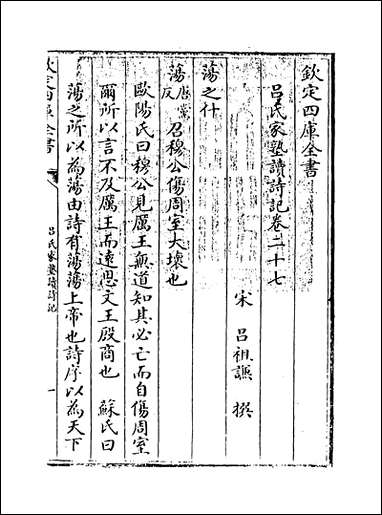 欽定四庫全書
呂氏家塾讀詩記卷二十七
宋 呂祖謙 撰
蕩之什
蕩唐黨反召穆公傷周室大壞也
歐陽氏曰穆公見厲王無道知其必亡而自傷周室
爾所以言不及厲王而遠思文王殷商也 蘇氏曰
蕩之所以為蕩由詩有蕩蕩上帝也詩序以為天下
欽定四庫全書
呂氏家塾讀詩記
一